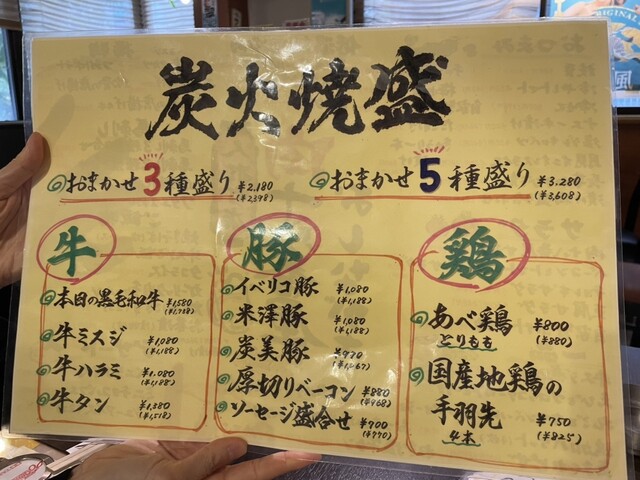 炭火焼盛
おまかせ3種盛り ¥2.180 (¥2,398)
おまかせ5種盛り ¥3.280 (¥3,608)
牛
本日の黒毛和牛 ¥1,580 (¥1,738)
牛ミスジ ¥1,080 (¥1,188)
牛ハラミ ¥1.080 (¥1,188)
牛タン ¥1,380 (¥1,518)
豚
イベリコ豚 ¥1,080 (¥1,188)
米澤豚 ¥1,080 (¥1,188)
炭美豚 ¥970 (¥1,067)
厚切りベーコン ¥880 (¥968)
ソーセージ盛合せ ¥700 (¥770)
鶏
あべ鶏 ¥800 (¥880)
とりもも
国産地鶏の
手羽先 ¥750 (¥825)
4本
ORIGINAL
風